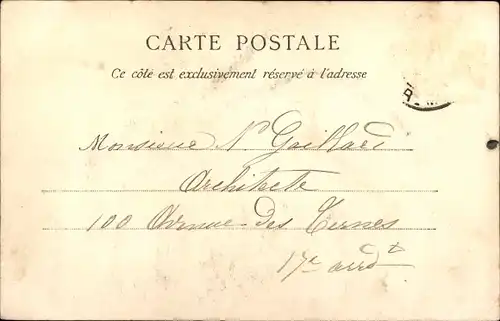 CARTE POSTALE
Ce côté est exclusivement réservé à l'adresse
R
Monsieur N. Gaillard
Architecte
100 Avenue des Ternes
17e arrdt